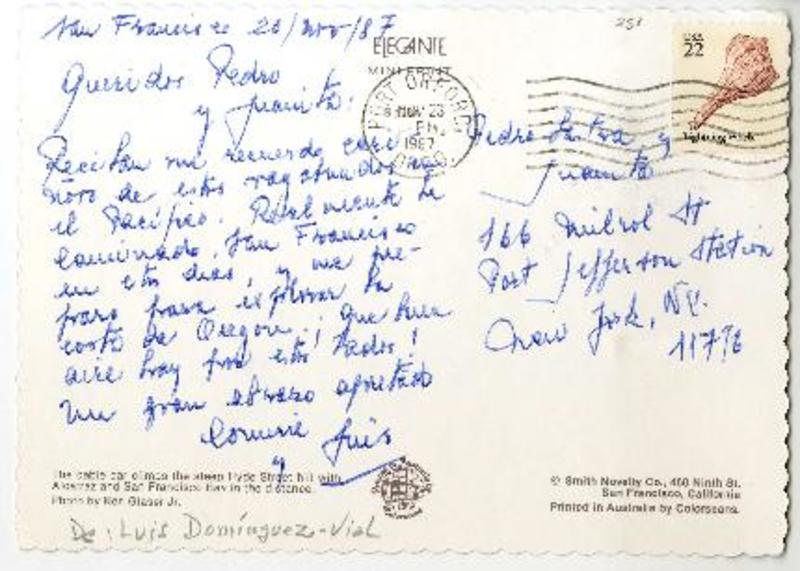 San Francisco 20/nov/87
Queridos Pedro
y Juanita:
Reciban mi recuerdo cari-
ñoso de estos vagabundos en
el Pacífico. Realmente he
caminado San Francisco
en estos días, y me pre-
paro para explorar la
costa de Oregon. ¡Que buen
aire hay por estos lados!
Un gran abrazo apretado
Luis
y
ELEGANTE
PORT ORFORD
NOV 23
PM
1987
USA
22
Lightning Whelk
251
Pedro Lastra y
Juanita
166 St
Port Jefferson Station
New York, NY.
11776
The cable car climbs the steep Hyde Street hill with
Alcatraz and San Francisco Bay in the distance.
Photo by Ken Glaser Jr.
De: Luis Domínguez-Vial
© Smith Novelty Co., 460 Ninth St.
San Francisco, California
Printed in Australia by Colorscans.